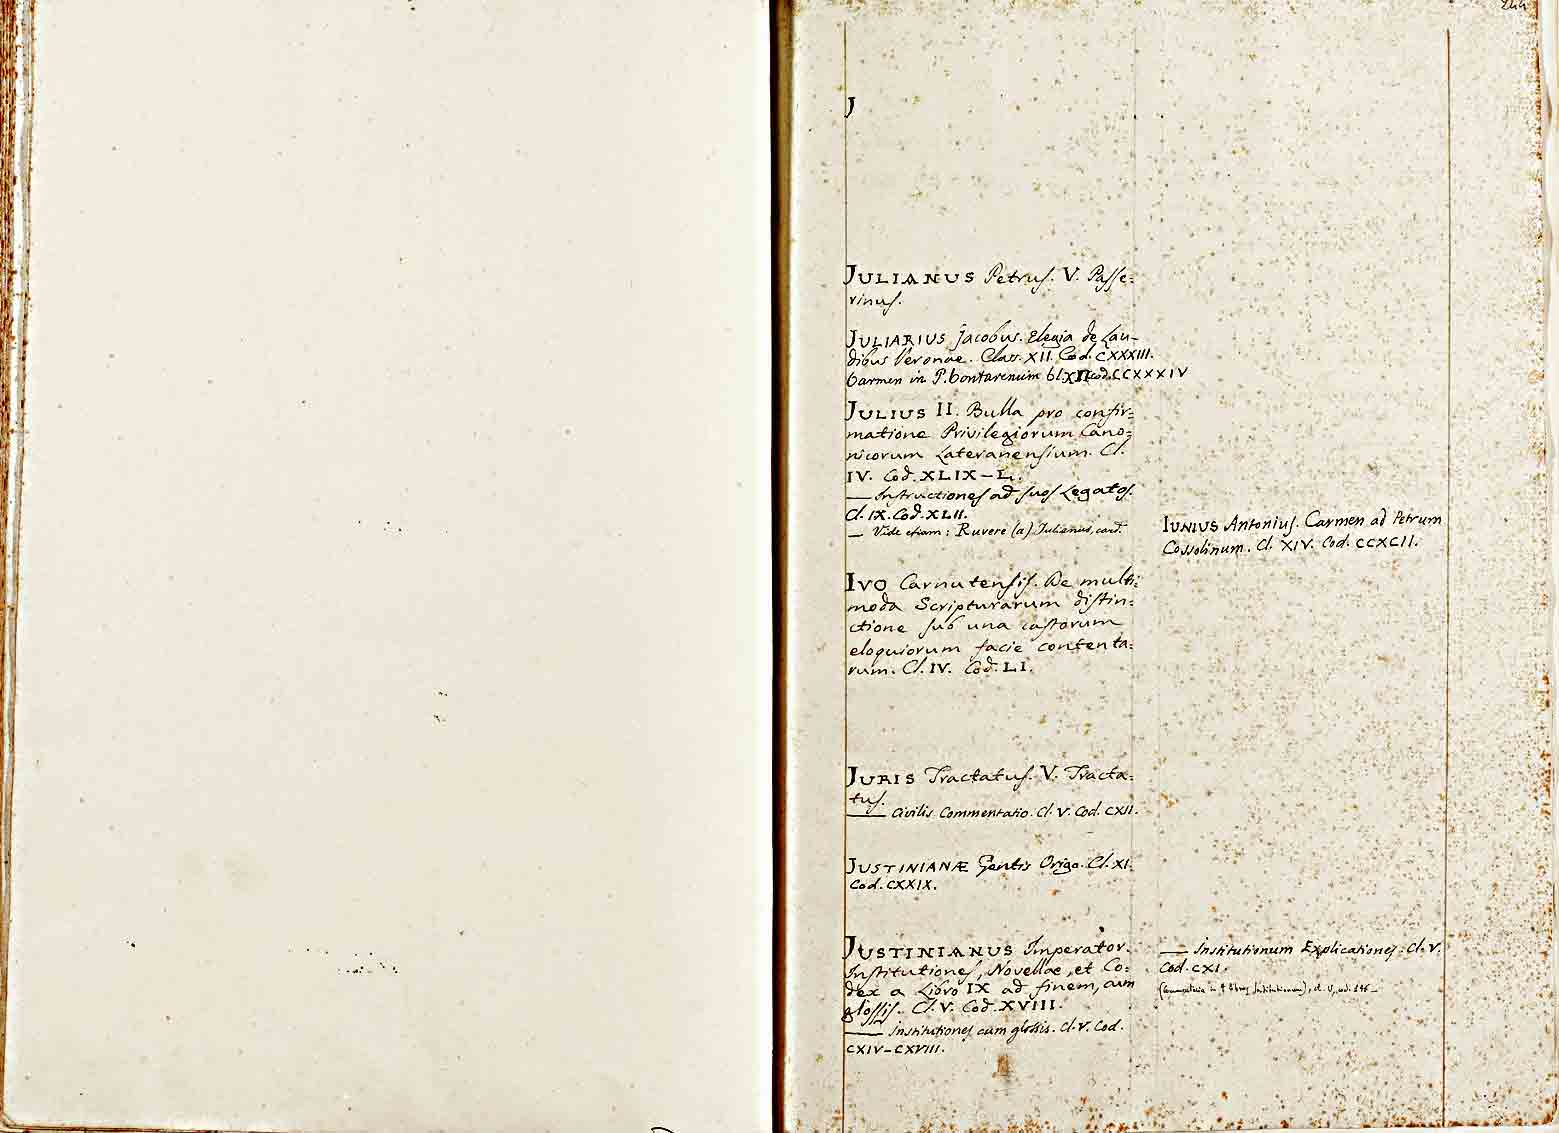 244
J
JULIANUS Petrus. V. Passe=
rinus.
JULIARIUS Jacobus. Elegia de Lau-
dibus Veronae. Class. XII. Cod. CXXXIII.
Carmen in P. Contarenum Cl. XII cod. CCXXXIV
JULIUS II. Bulla pro confir=
matione Privilegiorum Cano=
nicorum Lateranensium. Cl.
IV. Cod. XLIX-L.
— Instructiones ad suos Legatos.
Cl. IX. Cod. XLII.
— Vide etiam: Ruvere (a) Julianus, card.
IVO Carnutensis. De multi=
moda Scripturarum distin=
ctione sub una castorum
eloquiorum facie contenta=
rum. Cl. IV. Cod. LI.
JURIS Tractatus. V. Tracta=
tus.
— Civilis Commentatio. Cl. V. Cod. CXII.
JUSTINIANÆ Gentis Origo. Cl. XI.
Cod. CXXIX.
JUSTINIANUS Imperator.
Institutiones, Novellae, et Co=
dex a Libro IX ad finem, cum
glossis. Cl. V. Cod. XVIII.
— Institutiones cum glossis. Cl. V. Cod.
CXIV-CXVIII.
IUNIUS Antonius. Carmen ad Petrum
Cossolinum. Cl. XIV. Cod. CCXCII.
— Institutionum Explicationes. Cl. V.
Cod. CXI.
in 4 libros Institutionum), cl. V, cod.